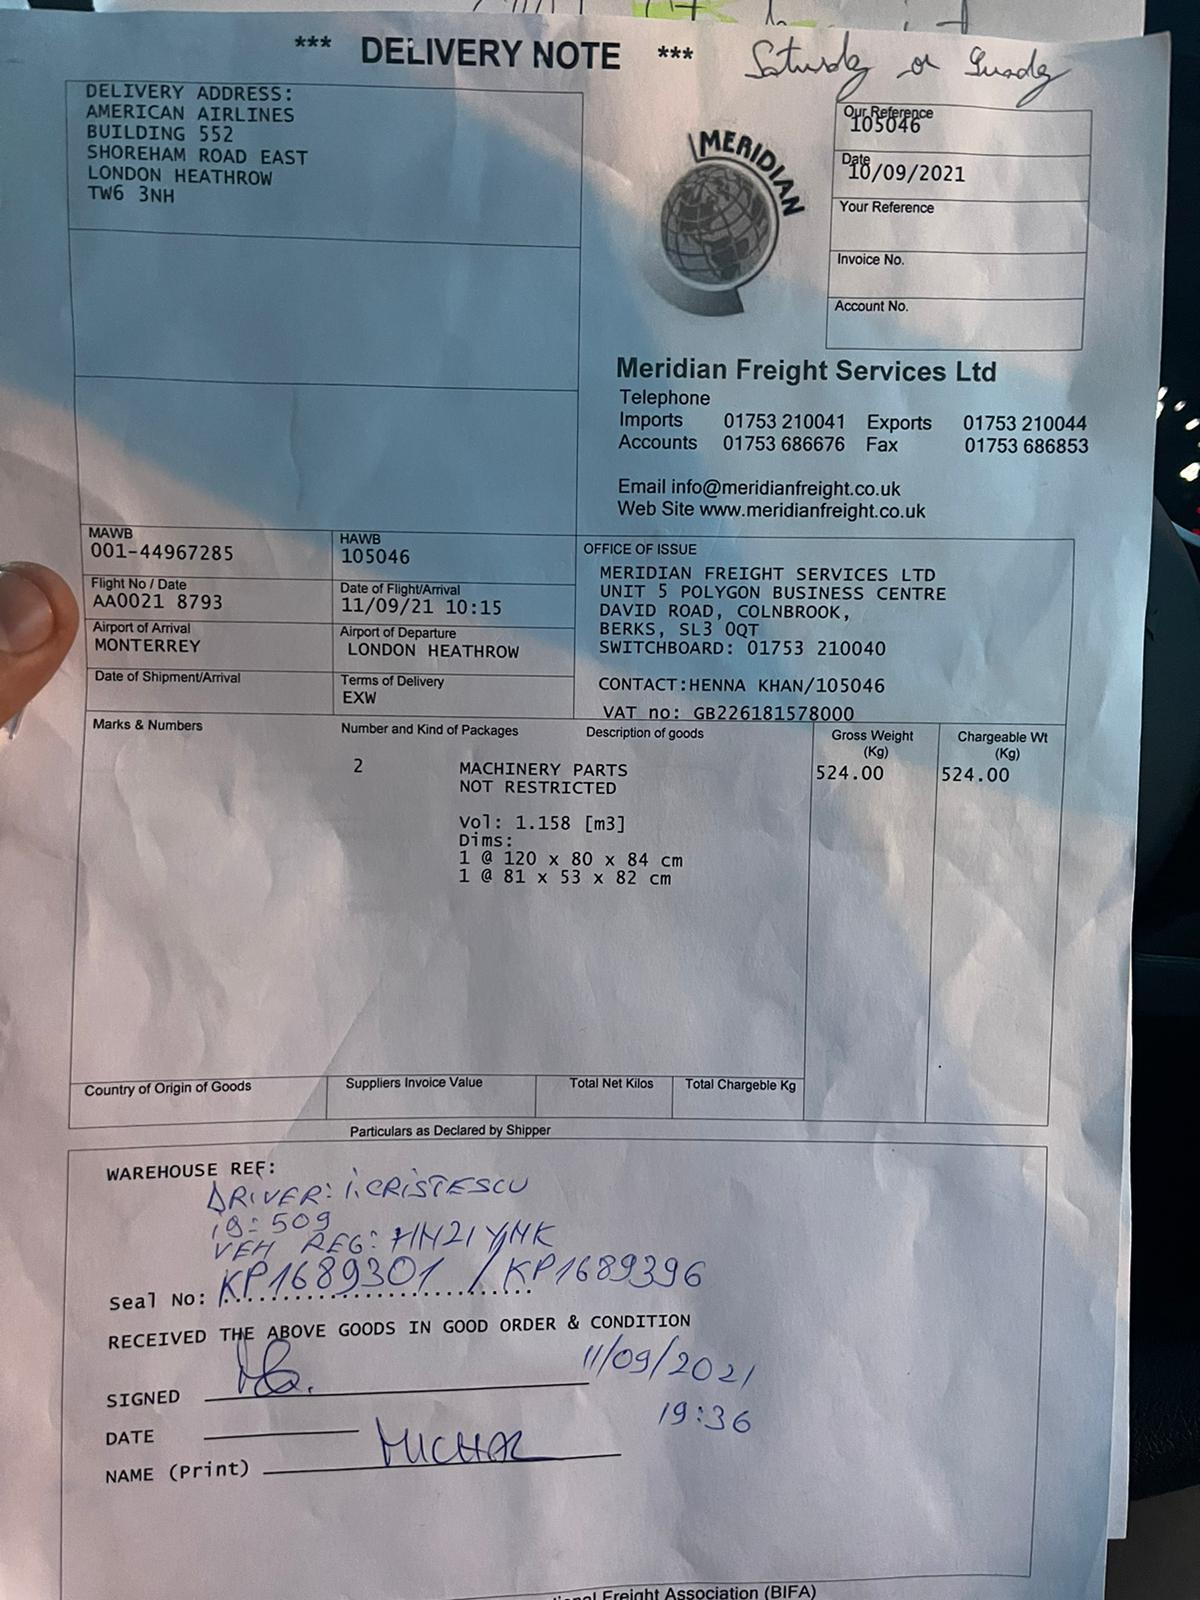 *** DELIVERY NOTE ***
Saturday or Sunday
DELIVERY ADDRESS:
AMERICAN AIRLINES
BUILDING 552
SHOREHAM ROAD EAST
LONDON HEATHROW
TW6 3NH
MERIDIAN
Our Reference
105046
Date
10/09/2021
Your Reference
Invoice No.
Account No.
Meridian Freight Services Ltd
Telephone
Imports 01753 210041 Exports 01753 210044
Accounts 01753 686676 Fax 01753 686853
Email info@meridianfreight.co.uk
Web Site www.meridianfreight.co.uk
MAWB
001-44967285
HAWB
105046
Flight No / Date
AA0021 8793
Date of Flight/Arrival
11/09/21 10:15
Airport of Arrival
MONTERREY
Airport of Departure
LONDON HEATHROW
Date of Shipment/Arrival
Terms of Delivery
EXW
OFFICE OF ISSUE
MERIDIAN FREIGHT SERVICES LTD
UNIT 5 POLYGON BUSINESS CENTRE
DAVID ROAD, COLNBROOK,
BERKS, SL3 0QT
SWITCHBOARD: 01753 210040
CONTACT:HENNA KHAN/105046
VAT no: GB226181578000
Marks & Numbers Number and Kind of Packages Description of goods Gross Weight (Kg) Chargeable Wt (Kg)
2 MACHINERY PARTS 524.00 524.00
NOT RESTRICTED
Vol: 1.158 [m3]
Dims:
1 @ 120 x 80 x 84 cm
1 @ 81 x 53 x 82 cm
Country of Origin of Goods Suppliers Invoice Value Total Net Kilos Total Chargeable Kg
Particulars as Declared by Shipper
WAREHOUSE REF:
DRIVER: I.CRISTESCU
509
VEH REG: HN21
Seal No: KP1689301 / KP1689396
RECEIVED THE ABOVE GOODS IN GOOD ORDER & CONDITION
SIGNED 11/09/2021
DATE 19:36
NAME (Print) MICHAL
Freight Association (BIFA)